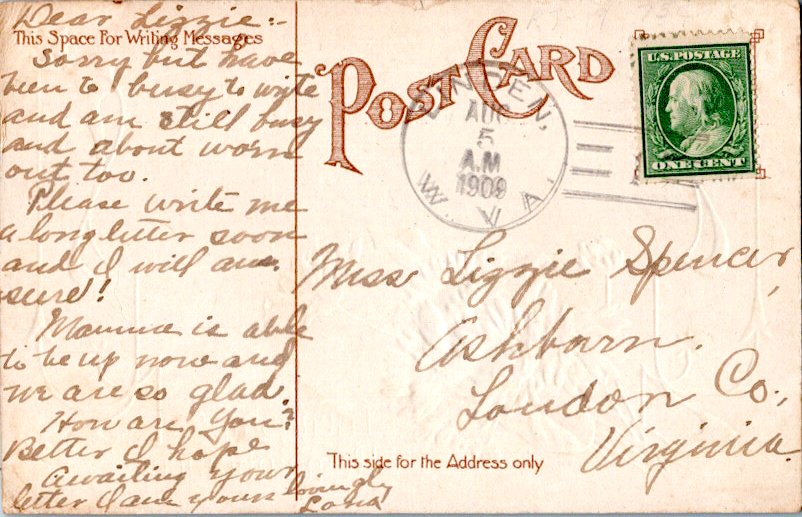 Dear Lizzie:-
This Space For Writing Messages
Sorry but have
been to busy to write
and am still busy
and about worn
out too.
Please write me
a long letter soon
and I will ans.
sure!
Mamma is able
to be up now and
we are so glad.
How are you?
Better I hope
Awaiting your
letter I am yours lovingly
POST CARD
WINDEN,
AUG
5
A.M
1909
W. VA.
U.S. POSTAGE
ONE CENT
Miss Lizzie Spencer,
Ashburn.
Loudon Co.,
Virginia.
This side for the Address only